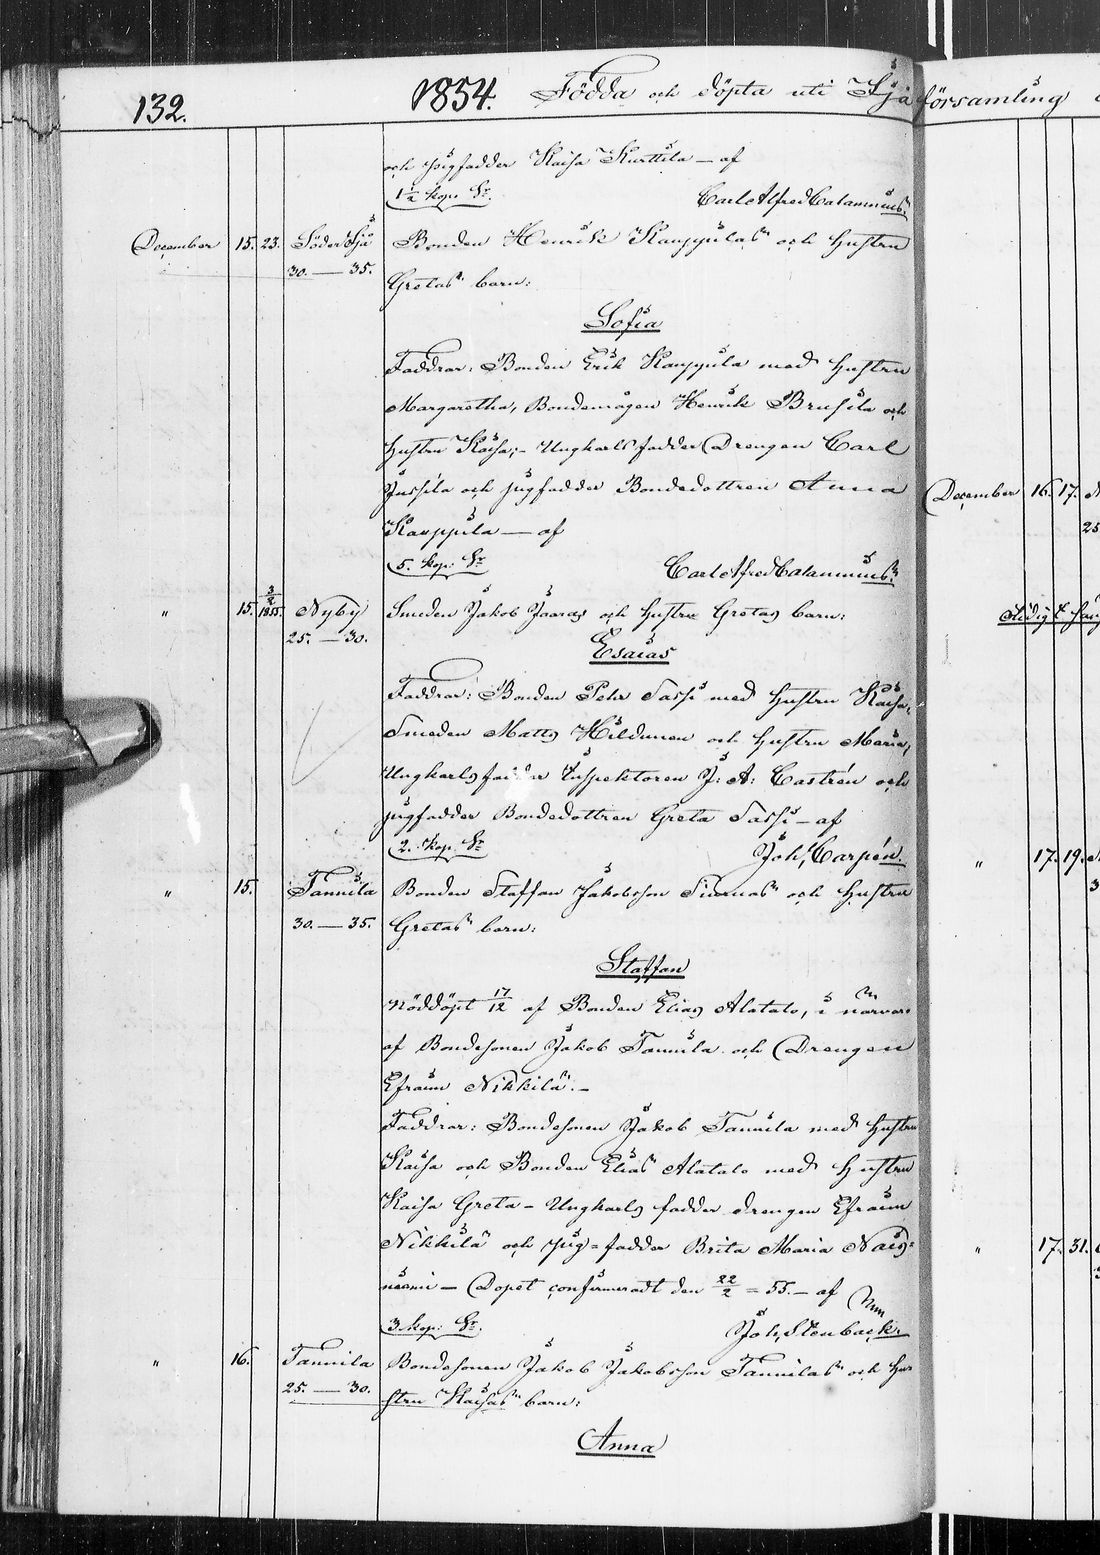 132. 1854. Födda och döpta uti Ijå församling
och pigfadder Kaisa Kurttila — af
1½ kop. Sr. Carl Alfred Calamnius.
December 15. 23. Söder Ijå Bonden Henrik Kauppilas och hustru
30. — 35. Gretas barn:
Sofia
Faddrar: Bonden Erik Kauppila med hustru
Margaretha, Bondemågen Henrik Brusila och
hustru Kaisa; – Ungkarlsfadder Drengen Carl
Jussila och pigfadder Bondedottren Anna
Kauppila — af
5. kop. Sr. Carl Alfred Calamnius.
" 15. 3/2 1855. Nyby Smeden Jakob Jaaras och hustru Gretas barn:
25. — 30.
Esaias
Faddrar: Bonden Pehr Sassi med hustru Kaisa,
Smeden Matts Hildunen och hustru Maria,
Ungkarlsfadder Inspektoren J: A: Castrén och
pigfadder Bondedottren Greta Sassi – af
2. kop. Sr. Joh, Carpén.
" 15. Tannila Bonden Staffan Jakobsson och hustru
30. — 35. Gretas barn:
Staffan
Nöddöpt 17/12 af Bonden Elias Alatalo, i närvaro
af Bondesonen Jakob Tannila och Drengen
Efraim Nikkilä. –
Faddrar: Bondesonen Jakob Tannila med hustru
Kaisa och Bonden Elias Alatalo med hustru
Kaisa Greta – Ungkarls fadder drengen Efraim
Nikkilä och pig-fadder Brita Maria Nais-
niemi – Dopet confirmeradt den 22/2 = 55. – af
3 kop. Sr. Joh, Stenback.
" 16. Tannila Bondesonen Jakob Jakobsson Tannilas och hu-
25. — 30. stru Kaisas barn:
Anna
December 16. 17.
25
" 17. 19.
3
" 17. 31.